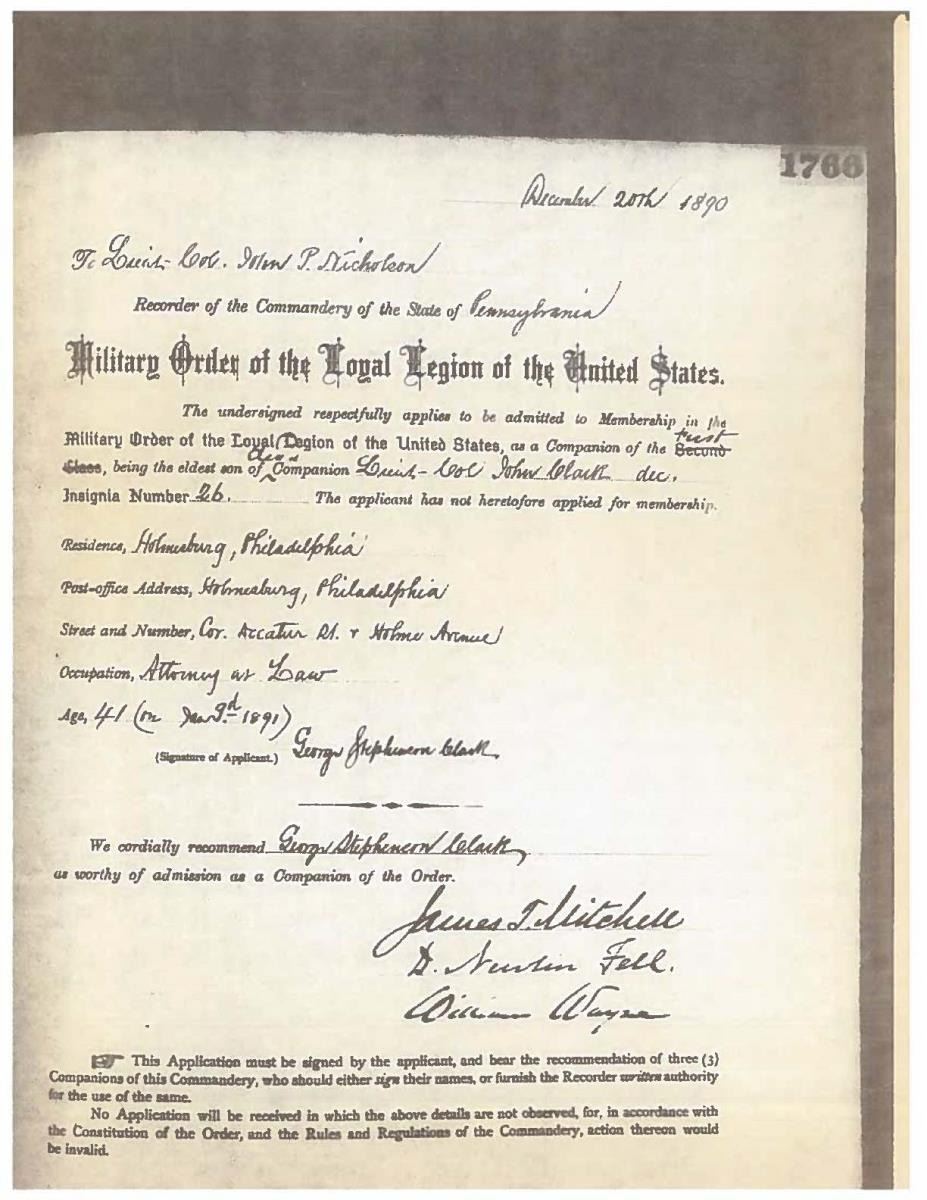 1766
December 20th 1890
To Lieut- Col. John P. Nicholson
Recorder of the Commandery of the State of Pennsylvania
Military Order of the Loyal Legion of the United States.
The undersigned respectfully applies to be admitted to Membership in the
Military Order of the Loyal Legion of the United States, as a Companion of the First Second
Class, being the eldest son of Companion Lieut- Col John Clark dec.
Insignia Number 26. The applicant has not heretofore applied for membership.
Residence, Holmesburg, Philadelphia
Post-office Address, Holmesburg, Philadelphia
Street and Number, Cor. Decatur St. & Holme Avenue
Occupation, Attorney at Law
Age, 41 (on Jan 3rd 1891)
(Signature of Applicant.) George Stephenson Clark
We cordially recommend George Stephenson Clark,
as worthy of admission as a Companion of the Order.
James T. Mitchell
D. Newlin Fell.
William Wayne
☞ This Application must be signed by the applicant, and bear the recommendation of three (3)
Companions of this Commandery, who should either sign their names, or furnish the Recorder written authority
for the use of the same.
No Application will be received in which the above details are not observed, for, in accordance with
the Constitution of the Order, and the Rules and Regulations of the Commandery, action thereon would
be invalid.